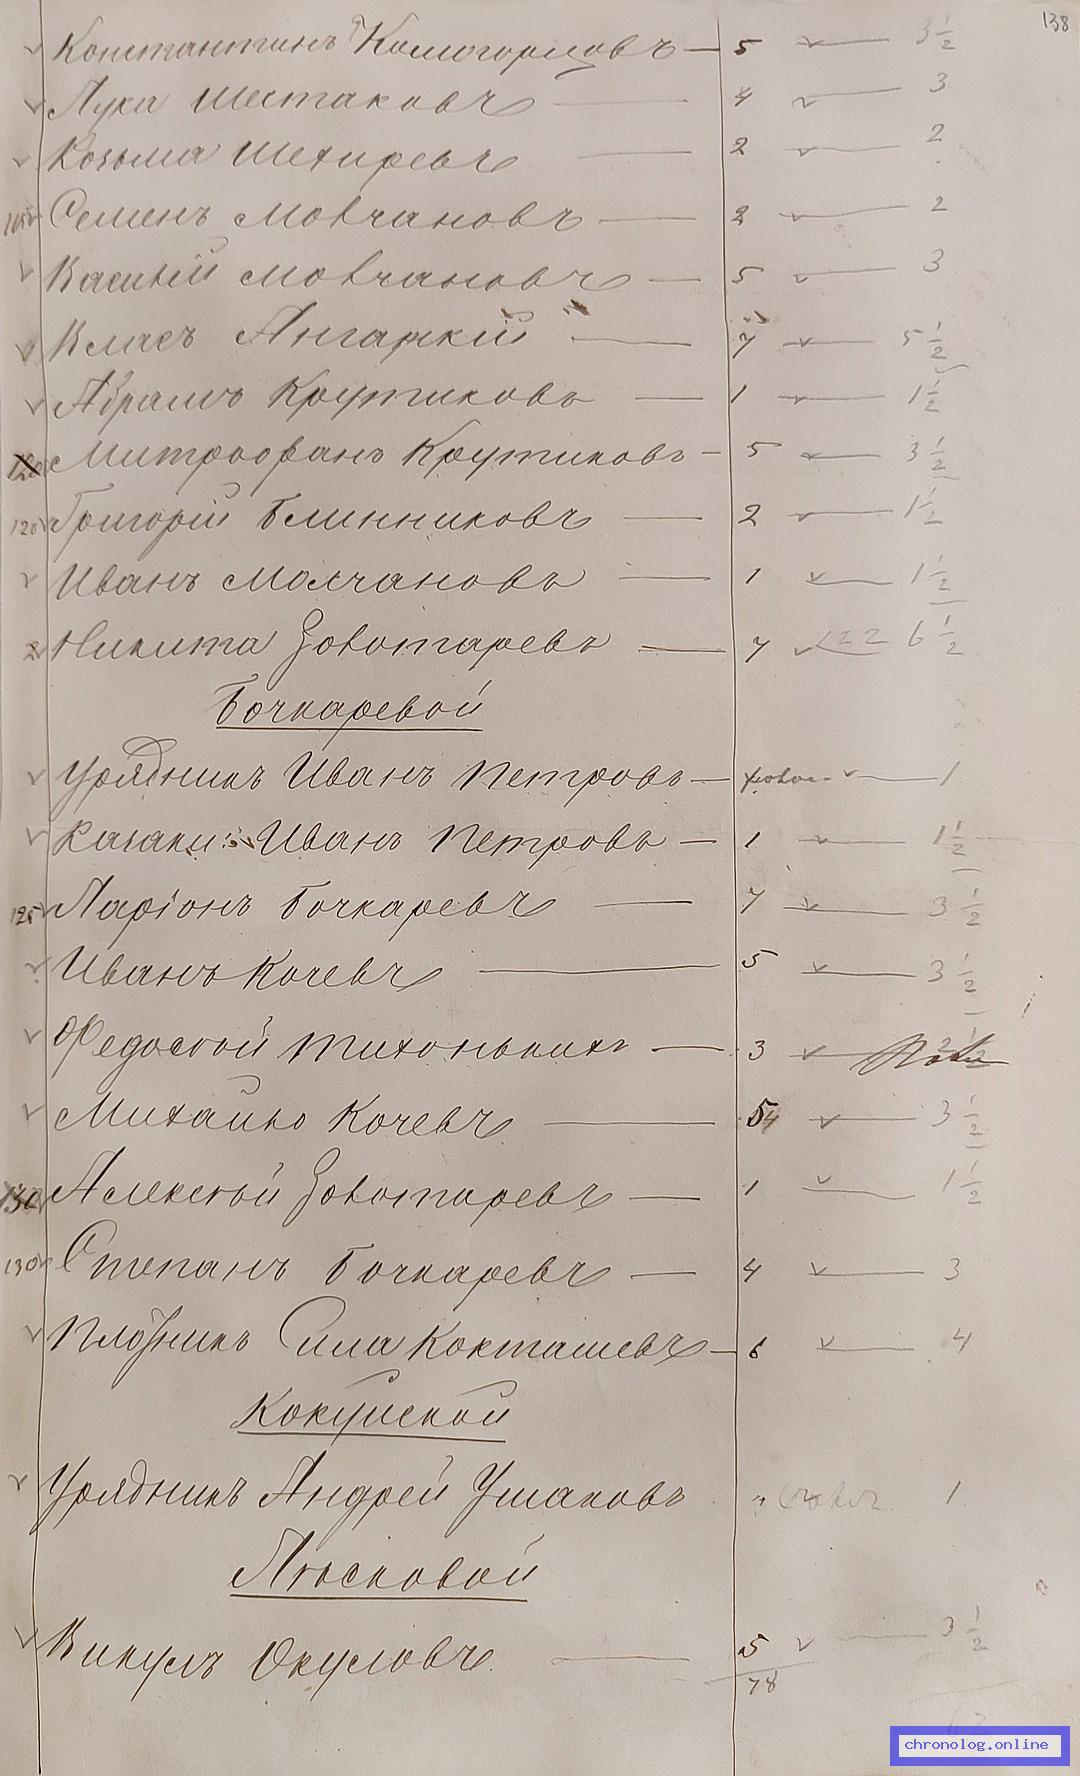 138
Константинъ Комогорцовъ — 5 3 1/2
Лука Шестаковъ — 4 3
Козьма Шехиревъ — 2 2
Семенъ Мовчановъ — 2 2
Василій Мовчановъ — 5 3
Власъ Ангаркій — 7 5 1/2
Абрамъ Крутиковъ — 1 1 1/2
Митрофанъ Крутиковъ — 5 3 1/2
120 Григорій Блинниковъ — 2 1 1/2
Иванъ Молчановъ — 1 1 1/2
Никита Золотаревъ — 7 6 1/2
Бочкаревой
Урядникъ Иванъ Петровъ — 1
Казаки: Иванъ Петровъ — 1 1 1/2
125 Ларіонъ Бочкаревъ — 7 3 1/2
Иванъ Кочевъ — 5 3 1/2
Федосѣй Тихонькихъ — 3
Михайло Кочевъ — 3 1/2
Алексѣй Золотаревъ — 1 1 1/2
130 Степанъ Бочкаревъ — 4 3
Плотникъ Сила Кокташевъ — 6 4
Кокуйской
Урядникъ Андрей Ушаковъ " 1
Лѣсковой
Викулъ Окуловъ — 5 3 1/2
78
chronolog.online